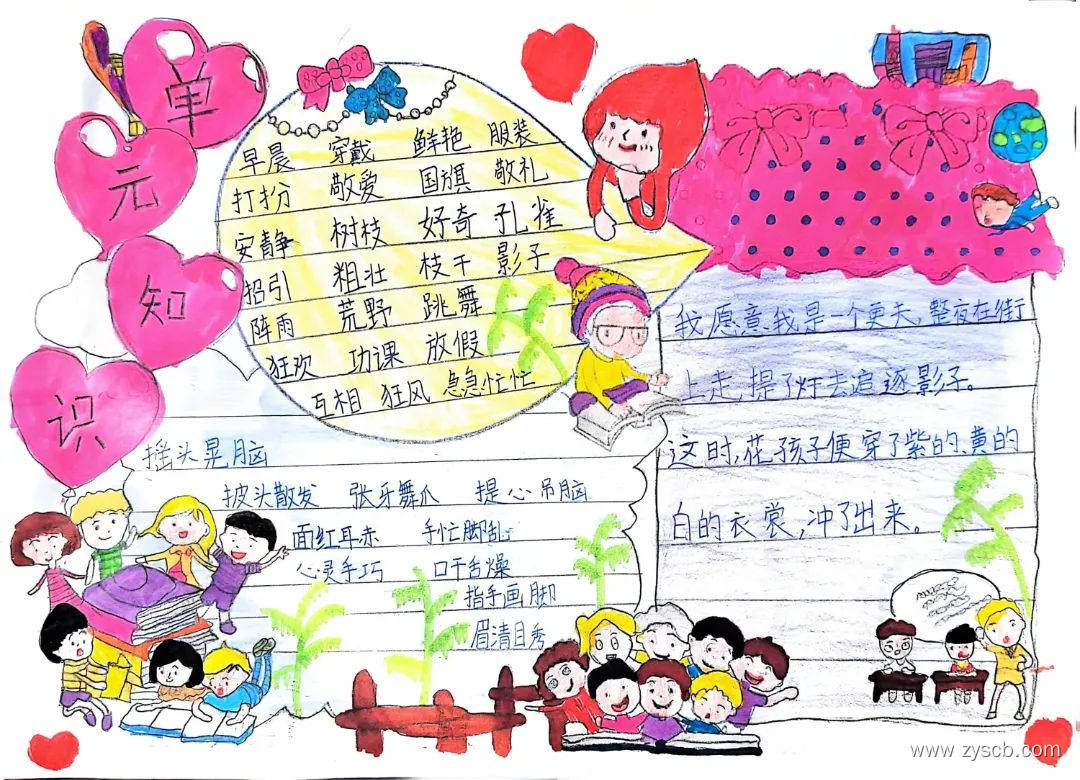 单元知识
早晨 穿戴 鲜艳 服装
打扮 敬爱 国旗 敬礼
安静 树枝 好奇 孔雀
招引 粗壮 枝干 影子
阵雨 荒野 跳舞
狂欢 功课 放假
互相 狂风 急急忙忙
摇头晃脑
披头散发 张牙舞爪 提心吊脑
面红耳赤 手忙脚乱
心灵手巧 口干舌燥
指手画脚
眉清目秀
我愿意我是一个更夫,整夜在街
上走,提了灯去追逐影子。
这时,花孩子便穿了紫的、黄的
白的衣裳,冲了出来。
www.zyscb.com